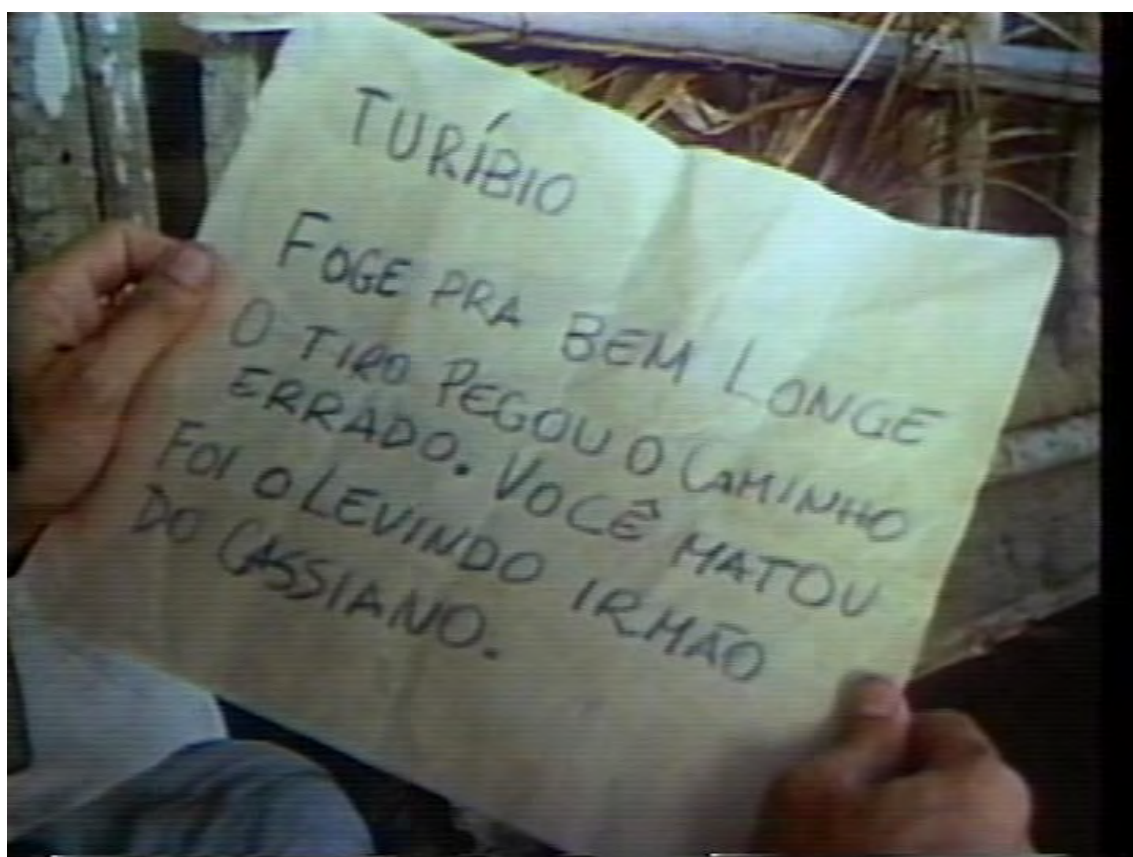 TURÍBIO
FOGE PRA BEM LONGE
O TIRO PEGOU O CAMINHO
ERRADO. VOCÊ MATOU
FOI O LEVINDO IRMÃO
DO CASSIANO.